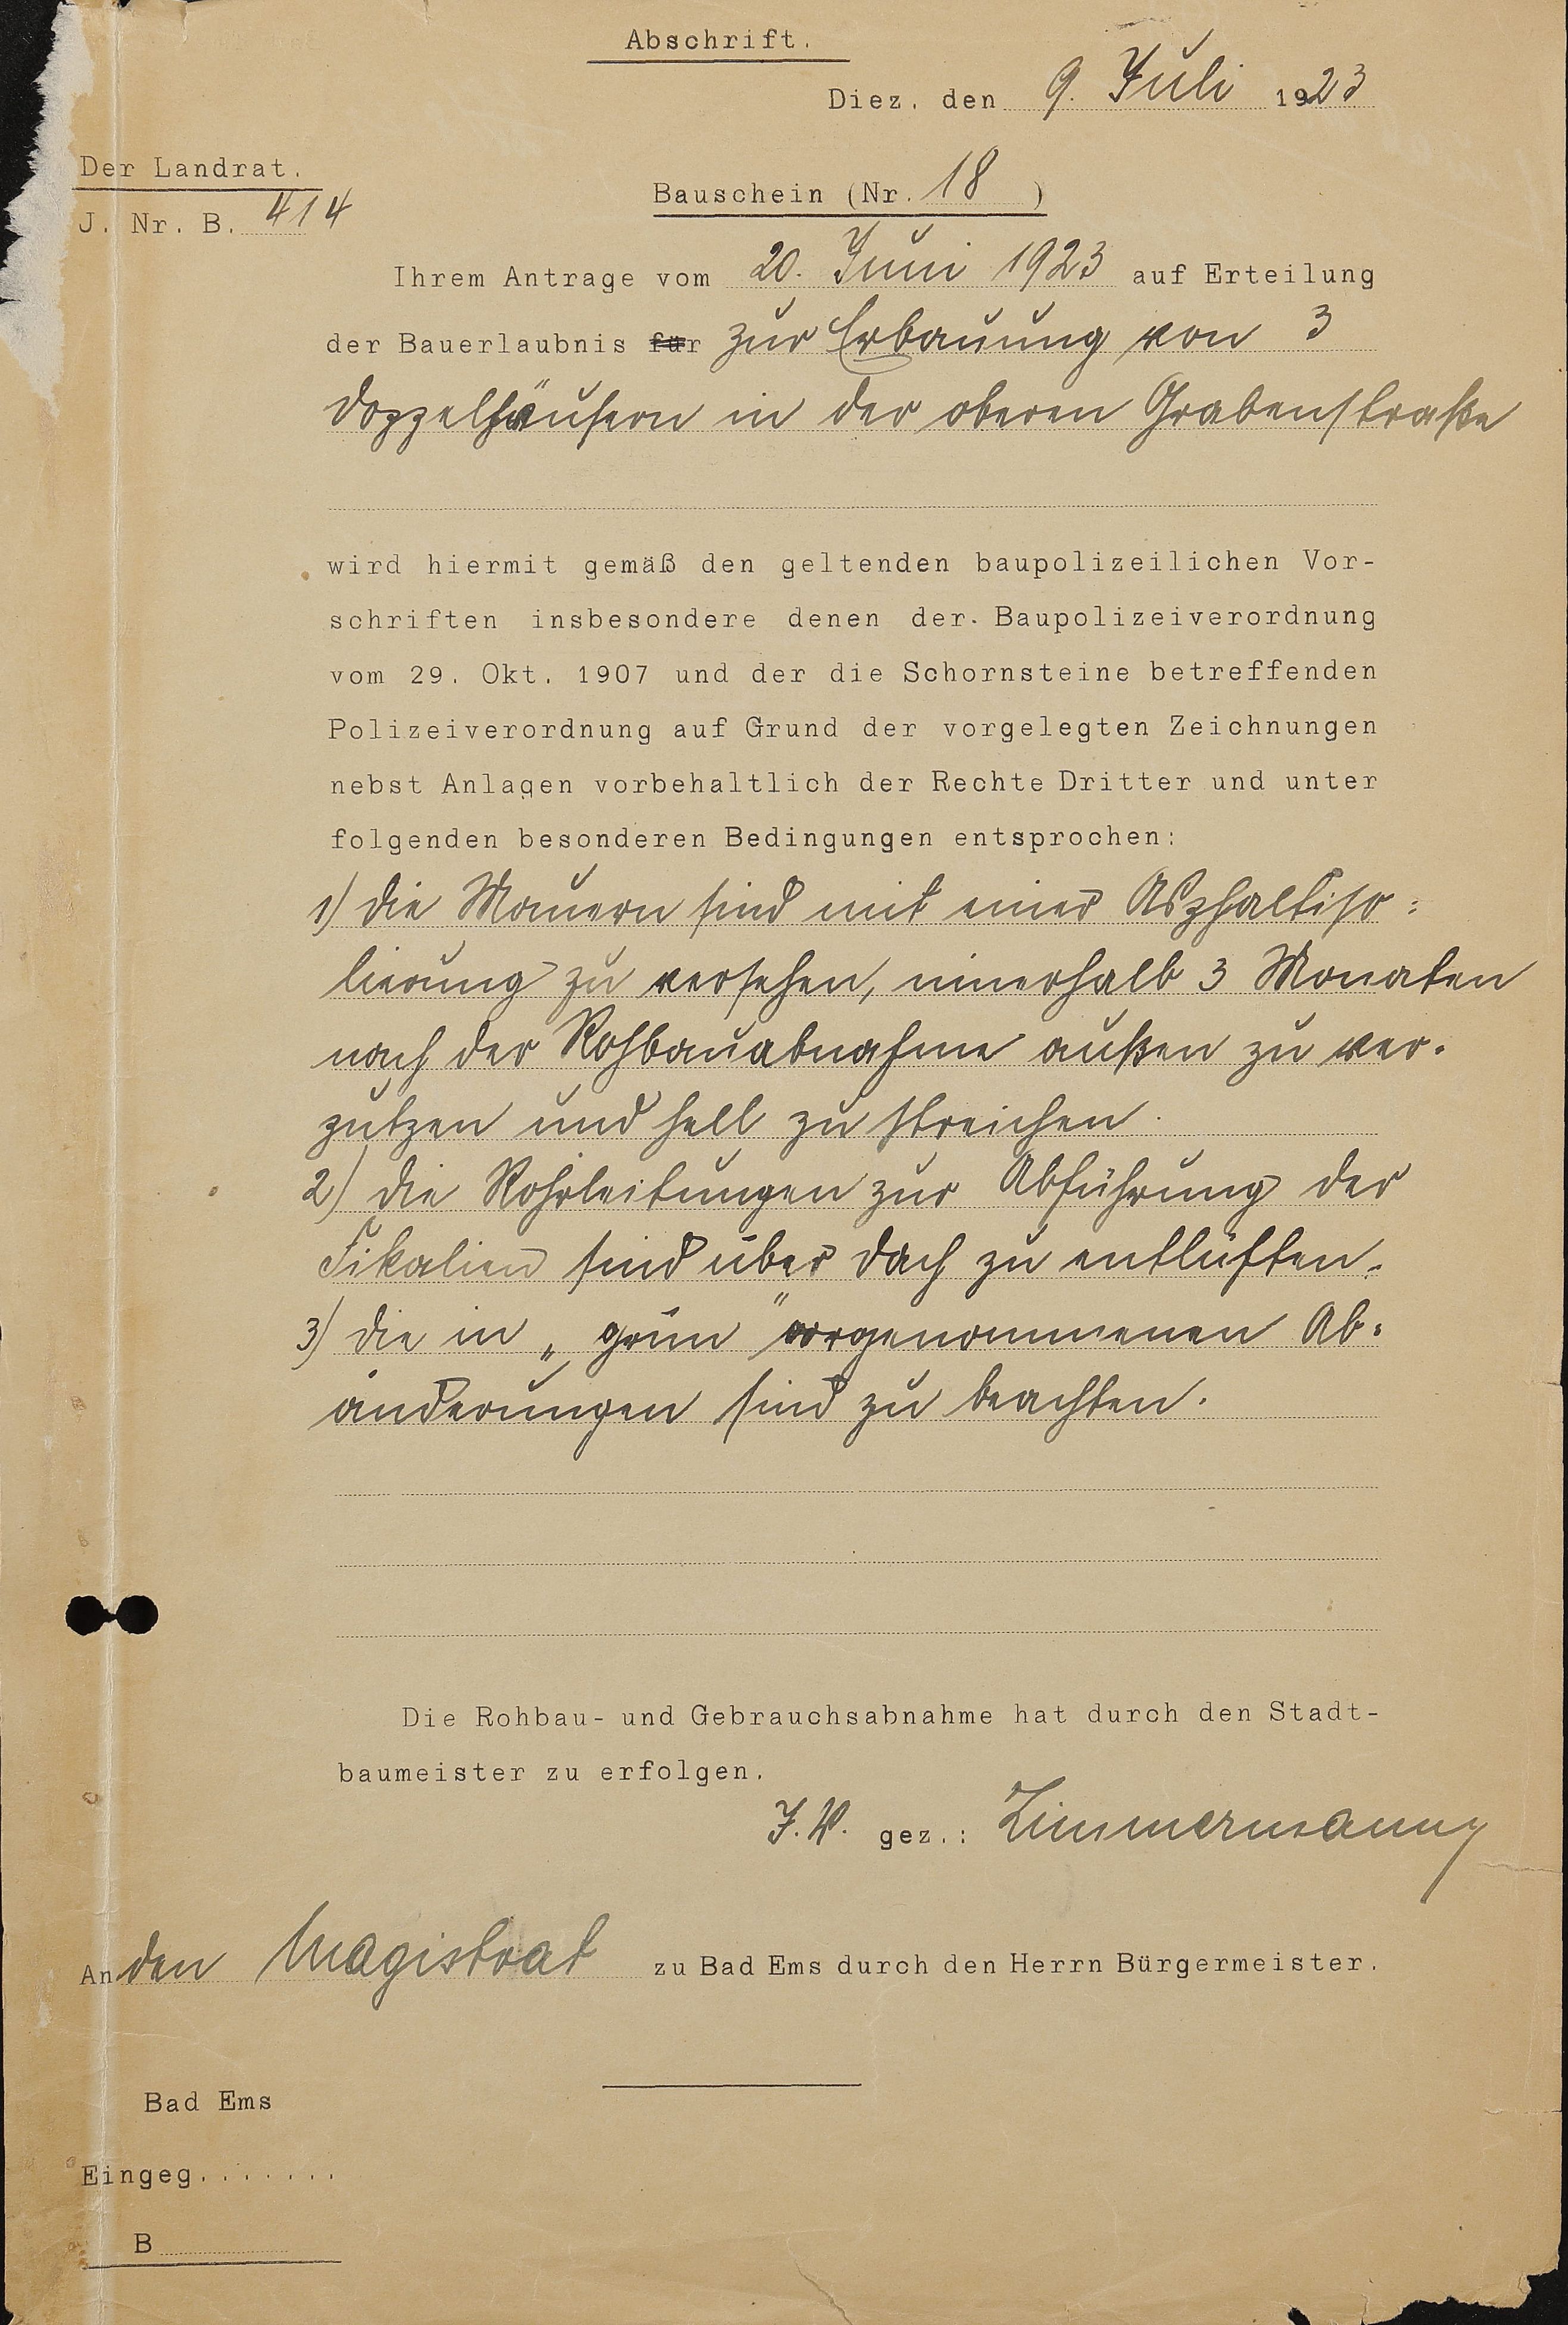 Abschrift.
Diez, den 9. Juli 1923
Der Landrat.
J. Nr. B. 414
Bauschein (Nr. 18 )
Ihrem Antrage vom 20. Juni 1923 auf Erteilung
der Bauerlaubnis für zur Erbauung von 3
Doppelhäusern in der oberen Grabenstraße
wird hiermit gemäß den geltenden baupolizeilichen Vor-
schriften insbesondere denen der Baupolizeiverordnung
vom 29. Okt. 1907 und der die Schornsteine betreffenden
Polizeiverordnung auf Grund der vorgelegten Zeichnungen
nebst Anlagen vorbehaltlich der Rechte Dritter und unter
folgenden besonderen Bedingungen entsprochen:
1) Die Mauern sind mit einer Asphaltiso-
lierung zu versehen, innerhalb 3 Monaten
nach der Rohbauabnahme außen zu ver-
putzen und hell zu streichen.
2) Die Rohrleitungen zur Abführung der
Fikalien sind über Dach zu entlüften.
3) Die in „grün" vorgenommenen Ab-
änderungen sind zu beachten.
Die Rohbau- und Gebrauchsabnahme hat durch den Stadt-
baumeister zu erfolgen.
J.V. gez.: Zimmermann
An den Magistrat zu Bad Ems durch den Herrn Bürgermeister.
Bad Ems
Eingeg.......
B